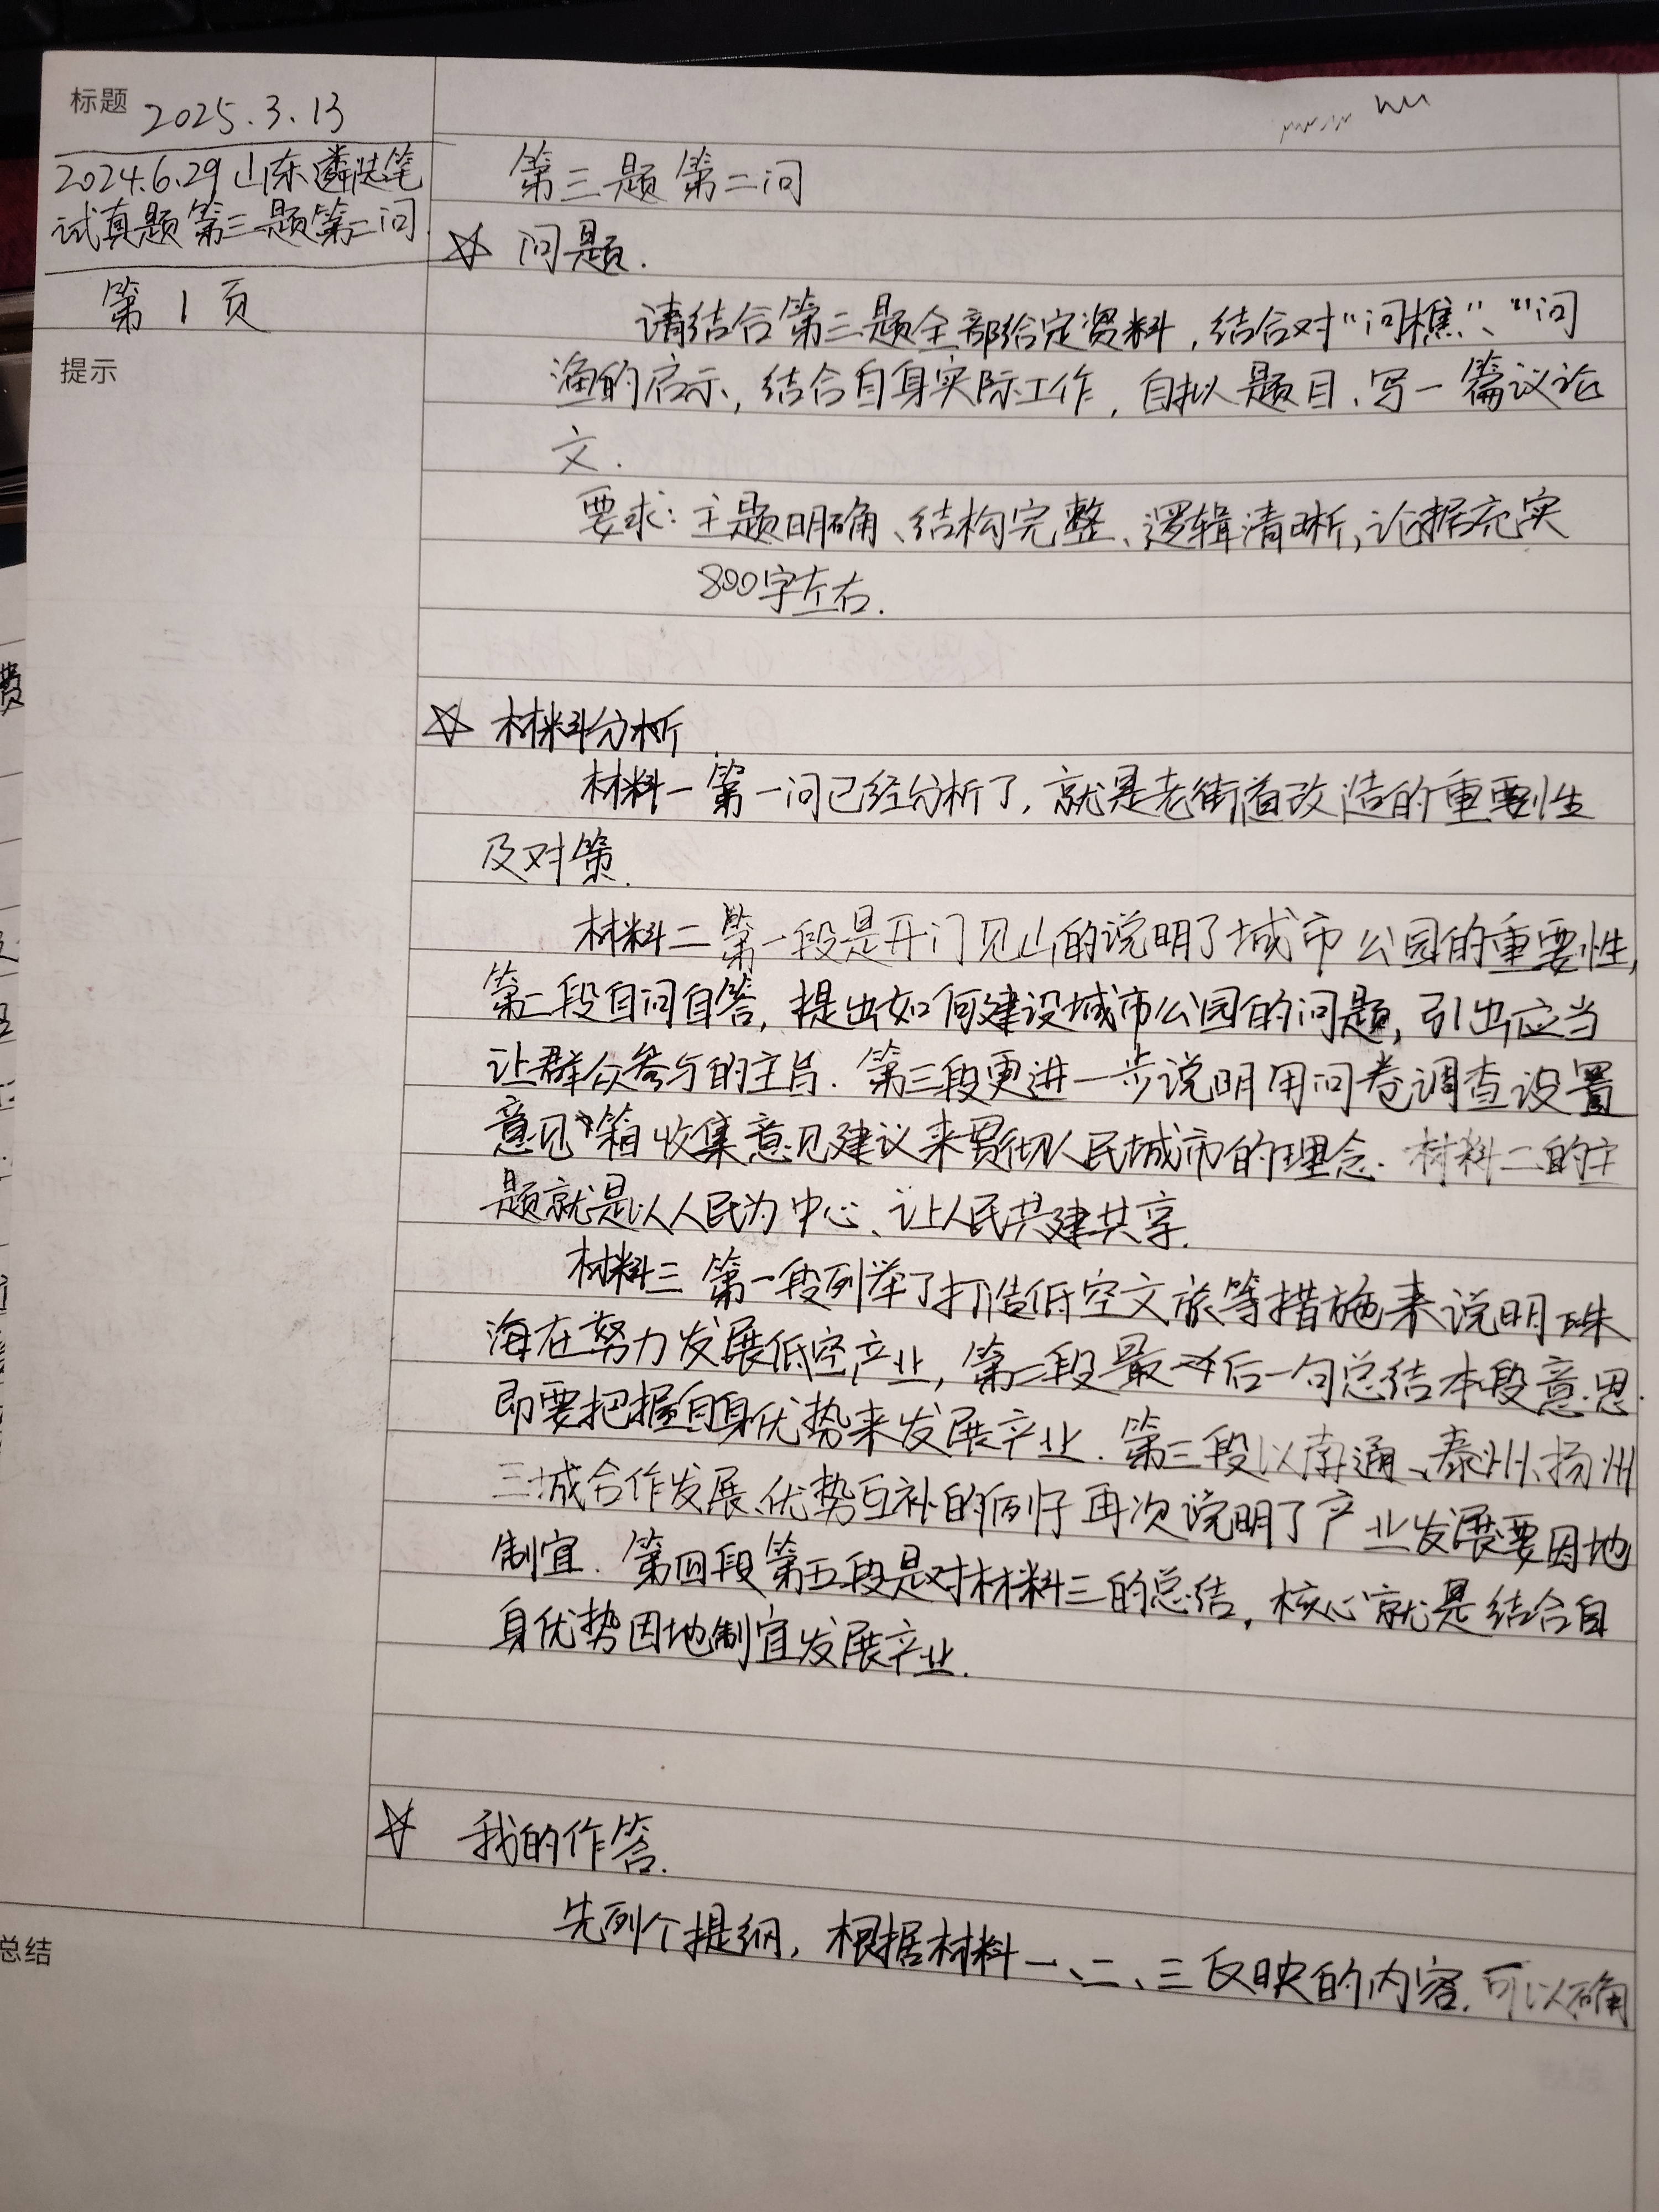 标题 2025.3.13
2024.6.29 山东遴选笔
试真题第三题第二问
第1页
提示
第三题第二问
☆ 问题.
请结合第三题全部给定资料，结合对“问樵”、“问
渔的启示，结合自身实际工作，自拟题目、写一篇议论
文.
要求：主题明确、结构完整、逻辑清晰，论据充实
800字左右.
☆ 材料分析
材料一第一问已经分析了，就是老街道改造的重要性
及对策.
材料二第一段是开门见山的说明了城市公园的重要性，
第二段自问自答，提出如何建设城市公园的问题，引出应当
让群众参与的主旨. 第三段更进一步说明用问卷调查设置
意见箱收集意见建议来贯彻人民城市的理念. 材料二的主
题就是以人民为中心、让人民共建共享.
材料三 第一段列举了打造低空文旅等措施来说明珠
海在努力发展低空产业，第二段最后一句总结本段意思.
即要把握自身优势来发展产业. 第三段以南通、泰州、扬州
三城合作发展、优势互补的例子再次说明了产业发展要因地
制宜. 第四段第五段是对材料三的总结，核心就是结合自
身优势因地制宜发展产业.
☆ 我的作答.
先列个提纲，根据材料一、二、三反映的内容. 可以确
总结